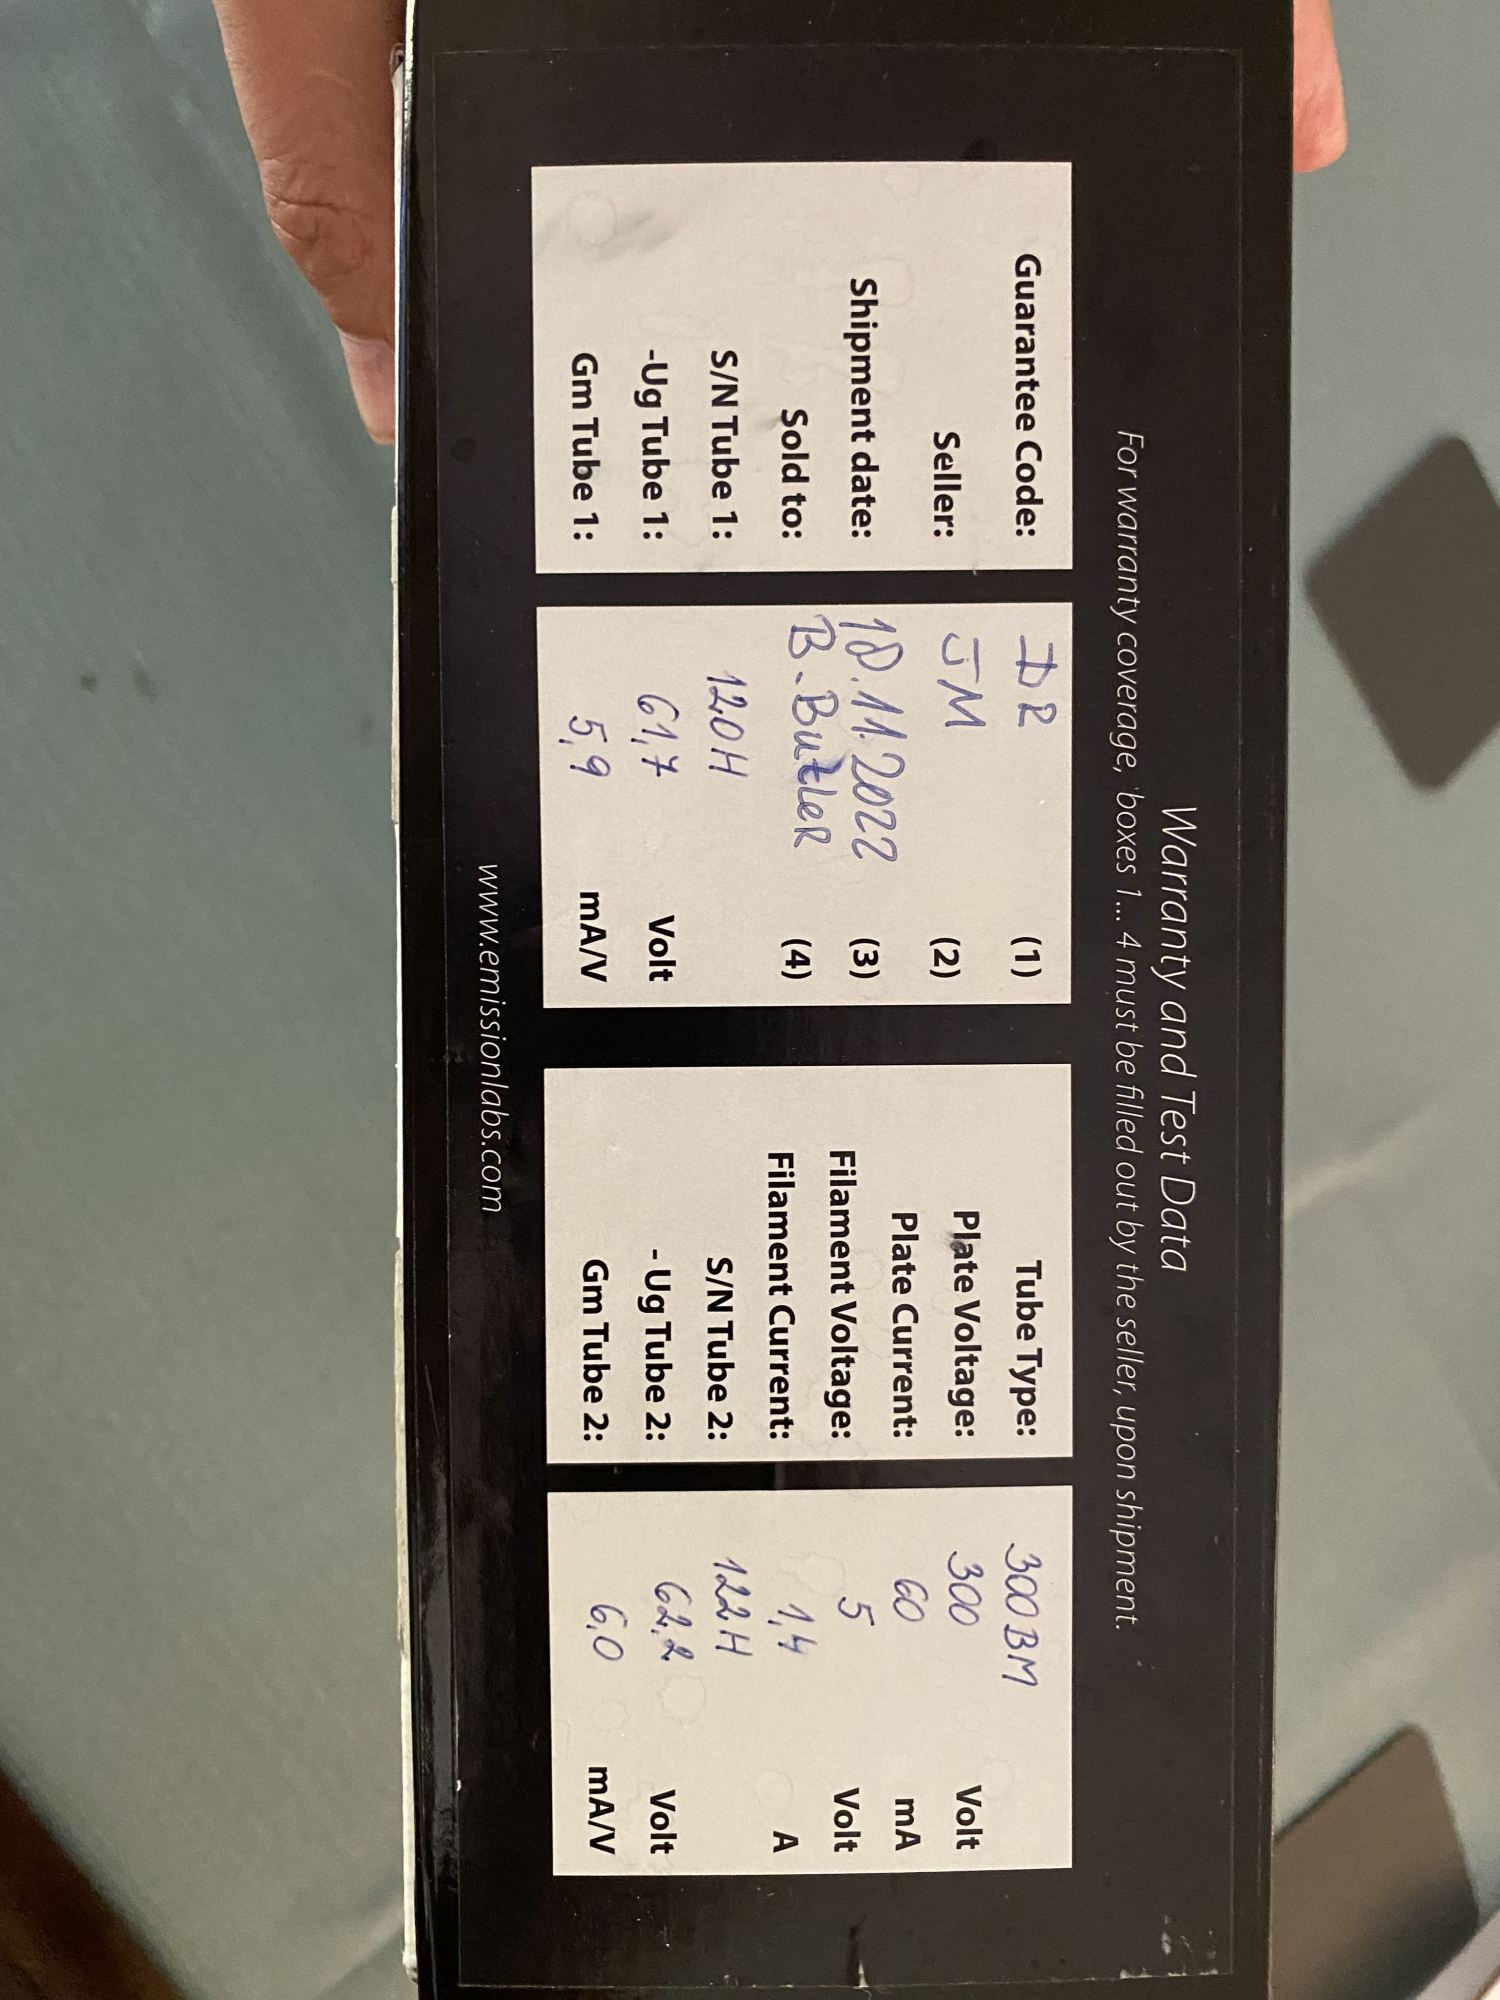 Warranty and Test Data
For warranty coverage, 'boxes 1... 4 must be filled out by the seller, upon shipment.
Guarantee Code: DR (1)
Seller: JM (2)
Shipment date: 18.11.2022 (3)
Sold to: B.Butler (4)
S/N Tube 1: 120H
-Ug Tube 1: 61,7 Volt
Gm Tube 1: 5,9 mA/V
Tube Type: 300BM
Plate Voltage: 300 Volt
Plate Current: 60 mA
Filament Voltage: 5 Volt
Filament Current: 1,4 A
S/N Tube 2: 122H
- Ug Tube 2: 62,2 Volt
Gm Tube 2: 6,0 mA/V
www.emissionlabs.com